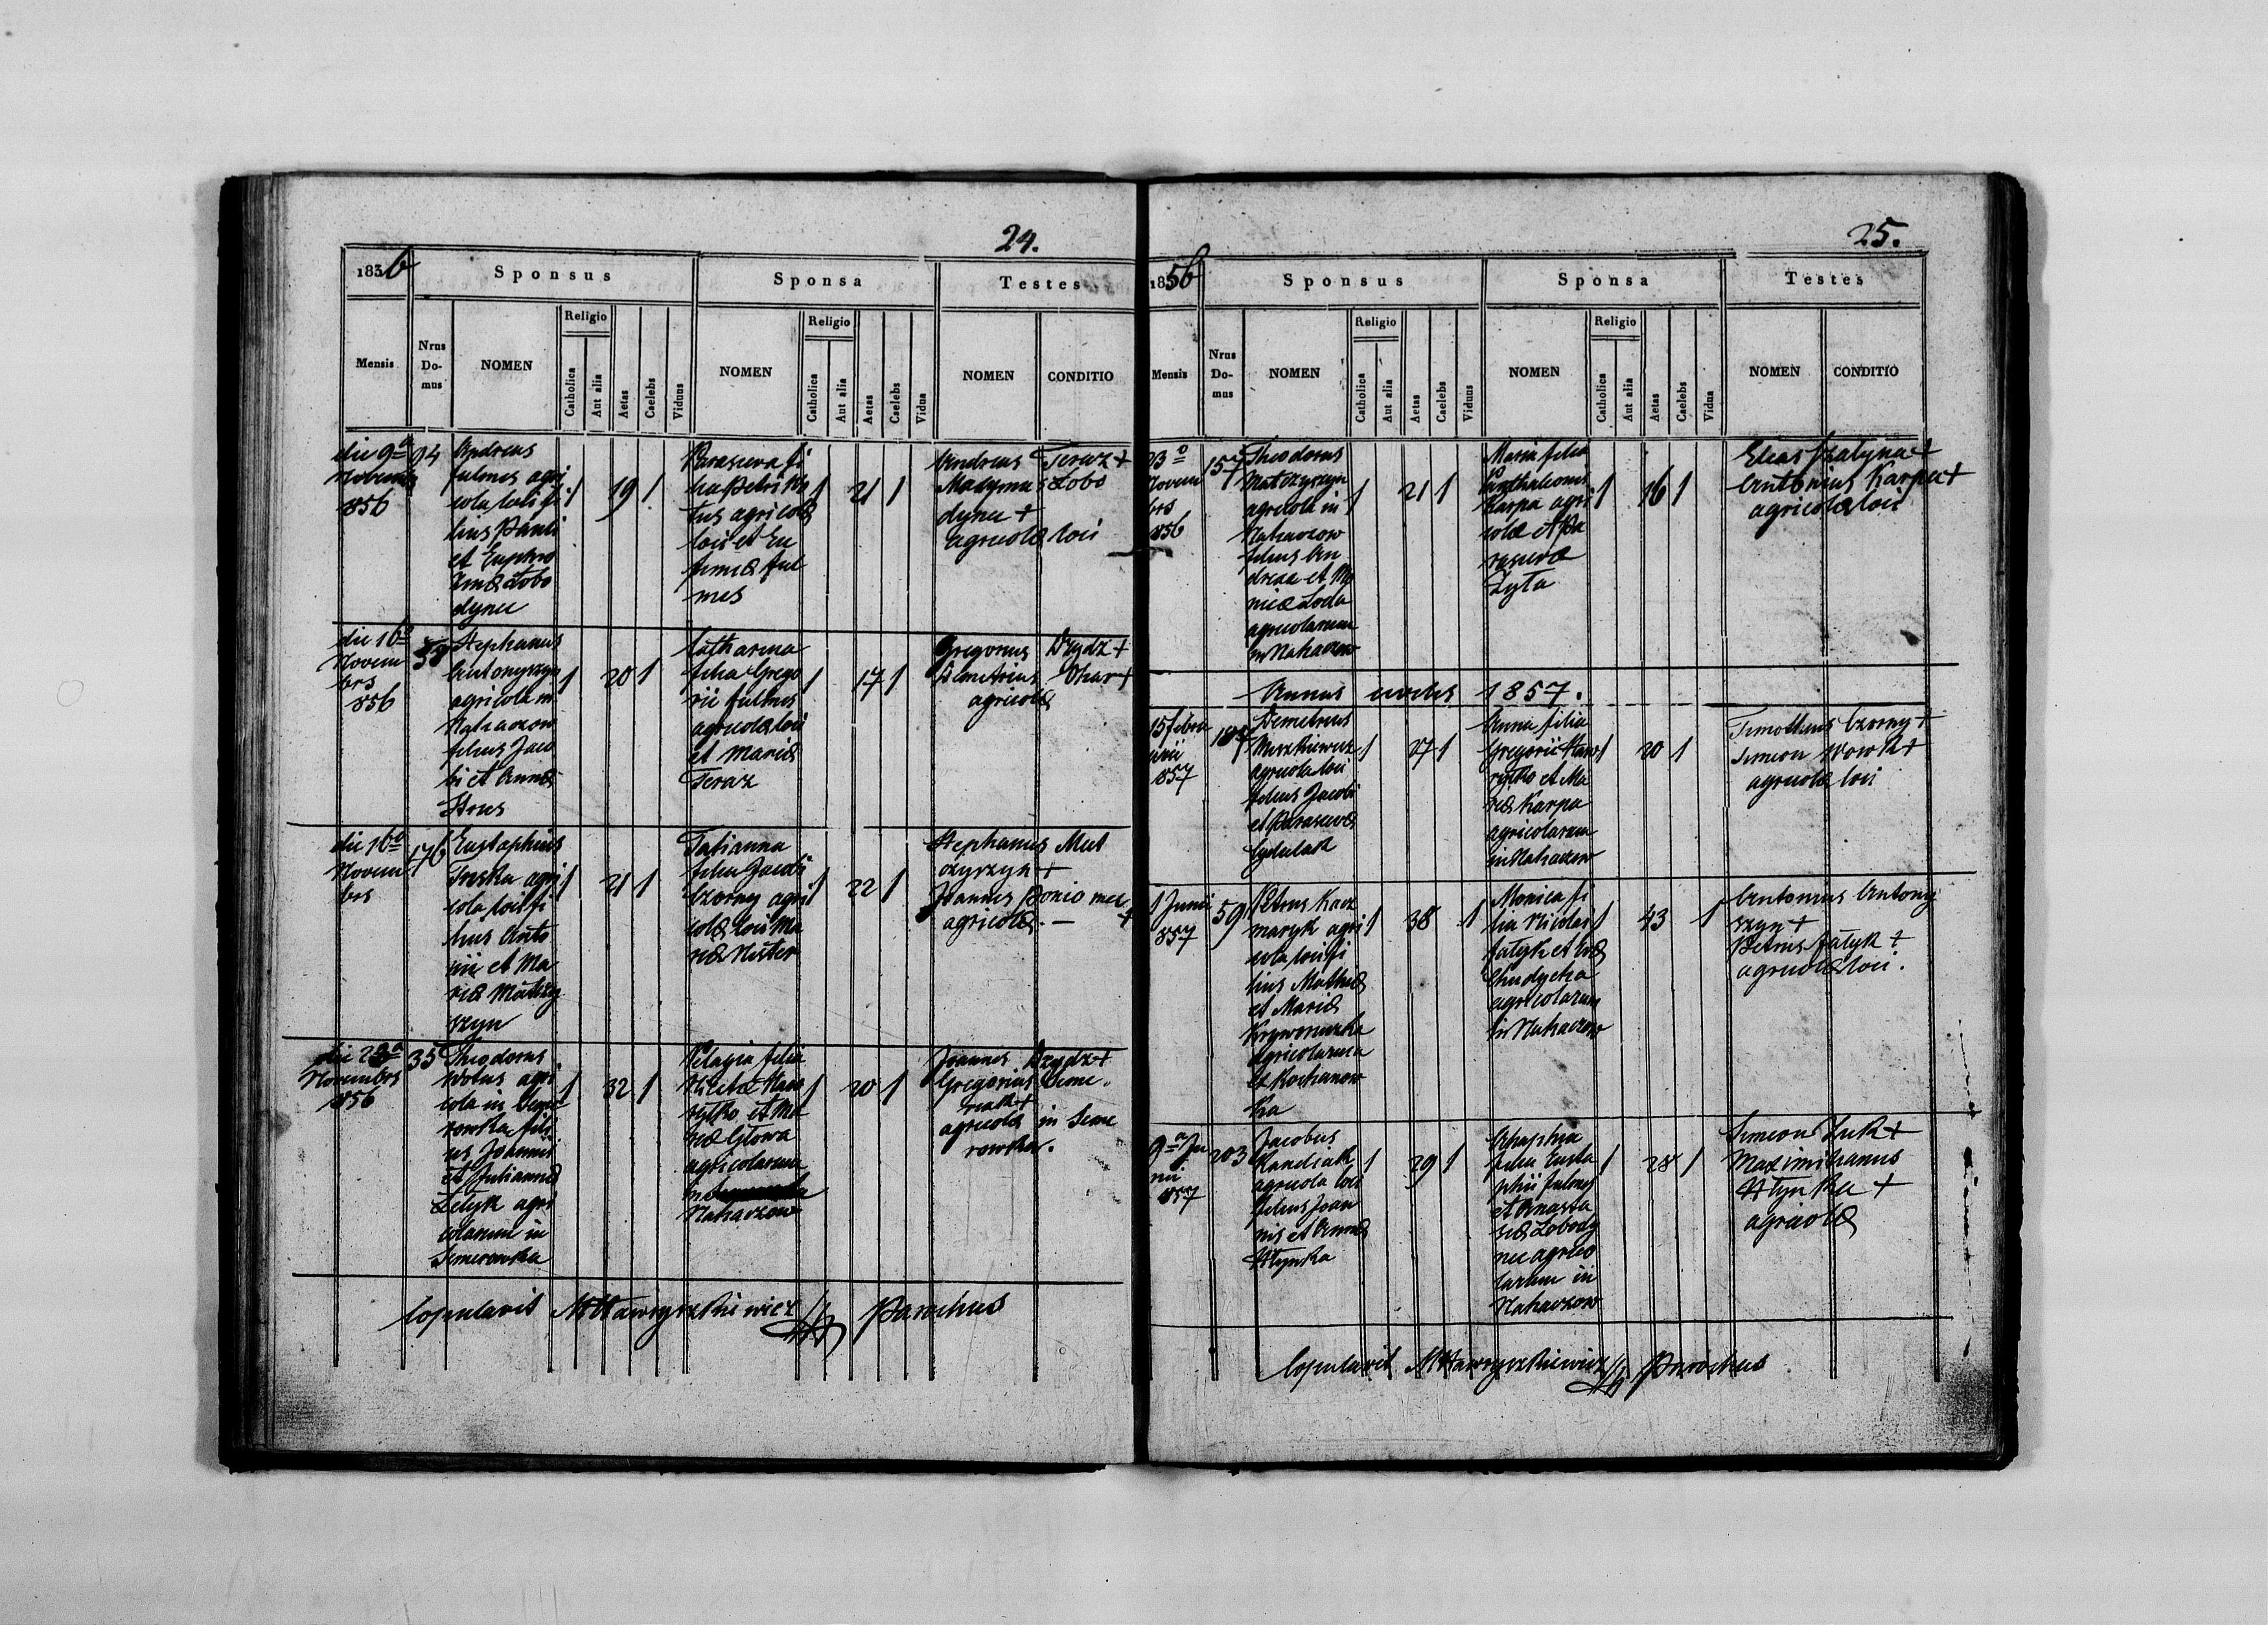 24.
1856
Sponsus
Sponsa
Testes
Mensis
Nrus Do-mus
NOMEN
Religio
Catholica
Aut alia
Aetas
Caelebs
Viduus
NOMEN
Religio
Catholica
Aut alia
Aetas
Caelebs
Vidua
NOMEN
CONDITIO
die 9a
Novembr
1856
94
Andreas
fulmes agri
cola loci fi
lius Pauli
et Euphro
zinæ Łobo
dyncu
1 19 1
Parasceva fi
lia Petri
tus agricolæ
loci et Eu
femiæ ful
mes
1 21 1
Andreas Feraz +
Maxymus Łobo
dyncu +
agricolæ loci
die 16a
Novem
bris
1856
Stephanus
Antonyszyn
agricola in
Nahaczow
filius Jaco
bi et Annæ
Hrus
1 20 1
Catharina
filia Grego
rii fulmes
agricolæ loci
et Mariæ
Feraz
1 17 1
Gregorius Dzydz +
Demetrius Ohar +
agricolæ
die 16a
Novem
bris
176
Eustaphius
Troska agri
cola loci fi
lius Anto
nii et Ma
riæ Matczy
szyn
1 21 1
Tatianna
filia Jacobi
Czorny agri
colæ loci Ma
riæ Nester
1 22 1
Stephanus Mat
czyszyn +
Joannes Ponio
agricolæ. — +
die 23a
Novembris
1856
35
Theodorus
Wolus agri
cola in Seme
rowka fili
us Joannis
et Juliannæ
Zelyk agri
colarum in
Semerowka
1 32 1
Pelagia filia
Nicetæ Haw
ryłko et Ma
riæ Głowa
agricolarum
in
Nahaczow
1 20 1
Joannes Dzydz +
Gregorius Seme
niak +
agricolæ in Seme
rowka.
Copulavit MHawryszkiewicz Parochus
25.
1856
Sponsus
Sponsa
Testes
Mensis
Nrus Do-mus
NOMEN
Religio
Catholica
Aut alia
Aetas
Caelebs
Viduus
NOMEN
Religio
Catholica
Aut alia
Aetas
Caelebs
Vidua
NOMEN
CONDITIO
23a
Novem
bris
1856
157
Theodorus
Matczyszyn
agricola in
Nahaczow
filius An
dreæ et Mo
nicæ Loda
agricolarum
in Nahaczow
1 21 1
Maria filia
Panthaleonis
Karpa agri
colæ et Pa
rascevæ
Zyła
1 16 1
Elias fzatyna +
Antonius Karpa +
agricolæ loci
Annus civilis 1857.
15 Febru
arii
1857
Demetrius
Muszkiewicz
agricola loci
filius Jacobi
et Parascevæ
Cydulak
1 27 1
Anna filia
Gregorii Haw
ryłko et Ma
riæ Karpa
agricolarum
in Nahaczow
1 20 1
Timotheus Czorny +
Simeon Wowk +
agricolæ loci
1 Junii
1857
59
Petrus Kacz
maryk agri
cola loci fi
lius Mathiæ
et Mariæ
Krywonuzka
agricolarum
ex Kochanow
ka
1 38 1
Monica fi
lia Nicolai
fatyk et Evæ
Chudycka
agricolarum
in Nahaczow
1 43 1
Antonius Antony
szyn +
Petrus fatyk +
agricolæ loci.
9a Ju
nii
1857
203
Jacobus
Kandiak
agricola loci
filius Joan
nis et Annæ
Hłynka
1 29 1
Ahaphia
filia Eusta
phii fulmes
et Anasta
siæ Łobody
ncu agrico
larum in
Nahaczow
1 28 1
Simeon Luk +
Maximilianus
Hłynka +
agricolæ
Copulavit MHawryszkiewicz Parochus